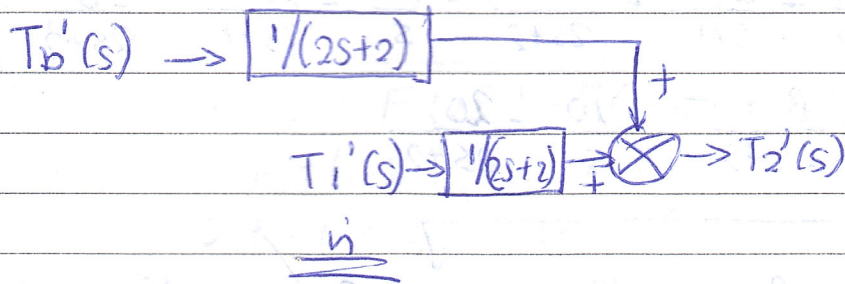 Tb'(s) → 1/(2s+2)
+
T1'(s) → 1/(2s+2) → + → T2'(s)